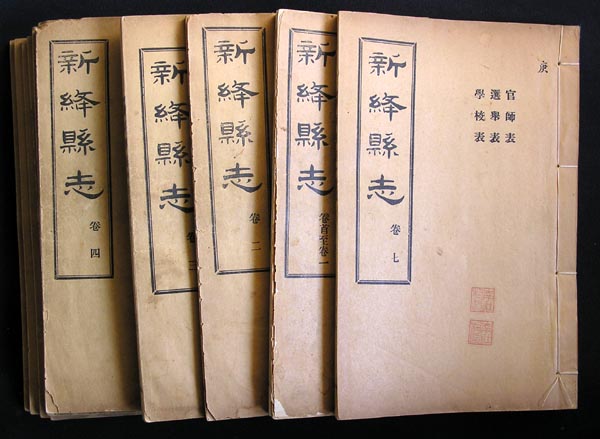 庚
官師表
選舉表
學校表
新絳縣志
卷七
新絳縣志
卷首至卷一
新絳縣志
卷二
新絳縣志
卷三
新絳縣志
卷四